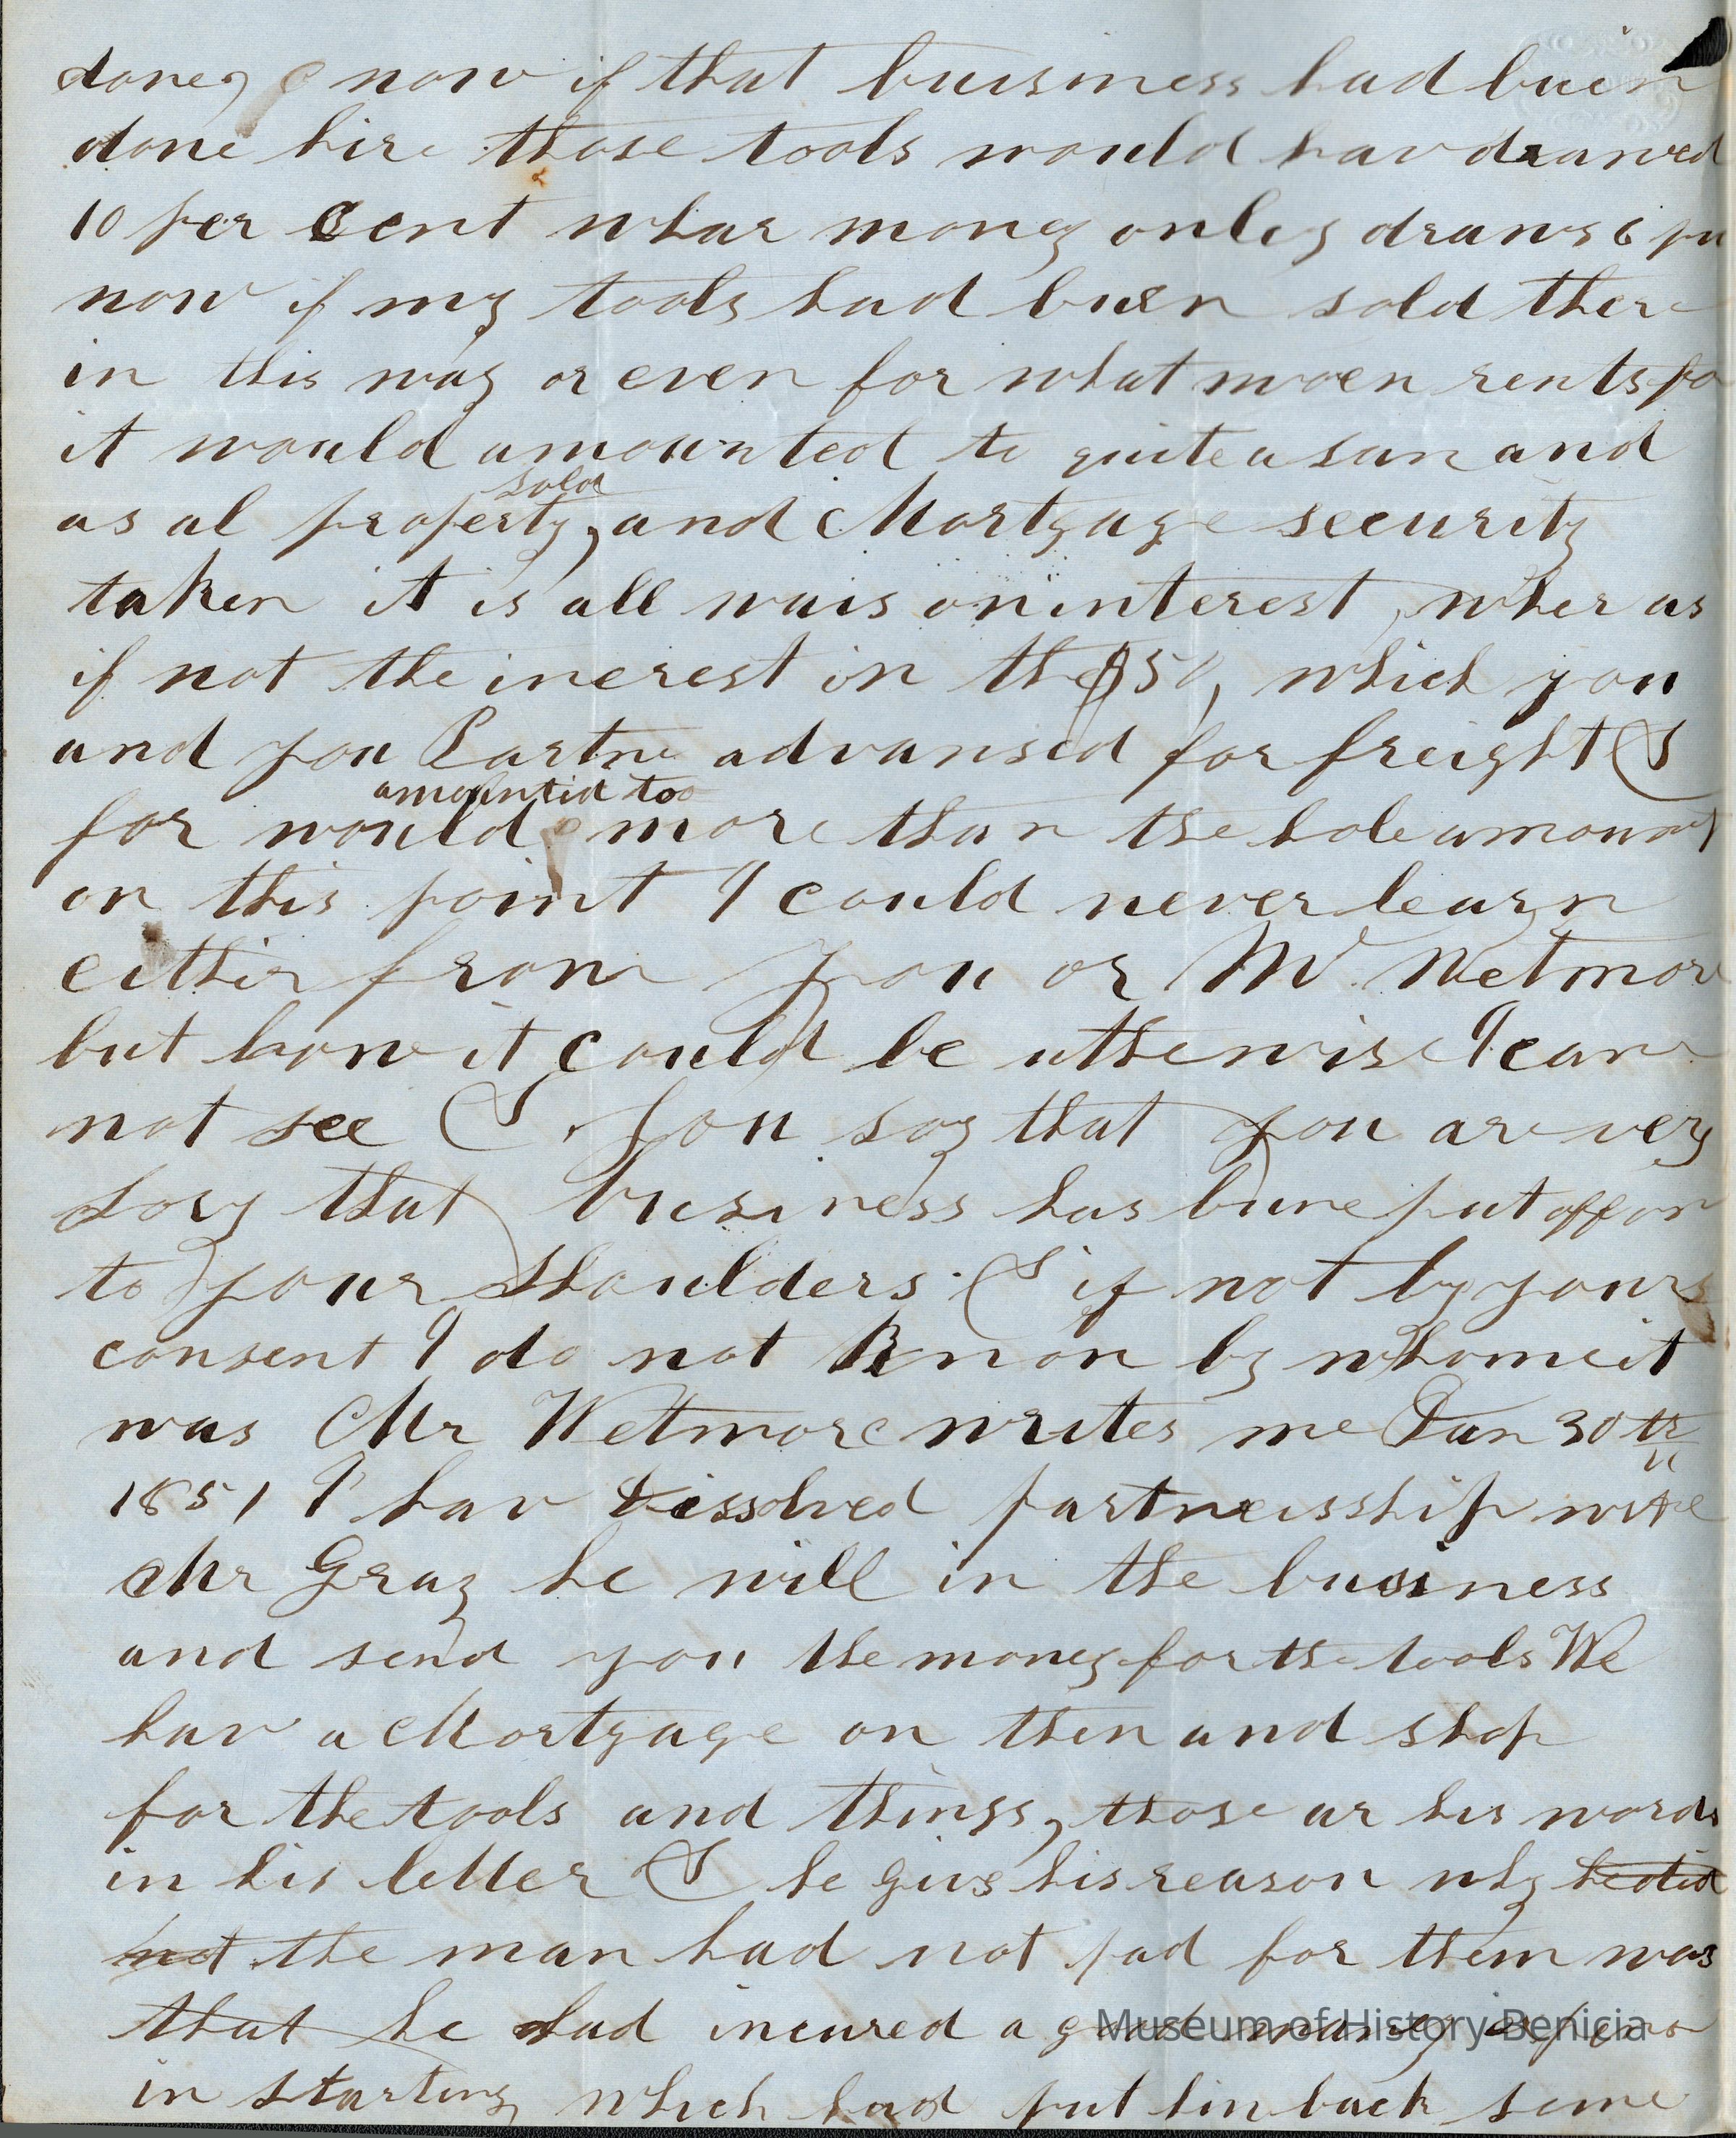 done, now if that buisiness had buein
done hire those tools would hav drawed
10 per cent whar money only draws 6 per
now if my tools had buen sold there
in this way or even for what moen rents for
it would amounted to quite a sun and
sold
as al property, and Mortgage security
taken it is all wais on interest, wher as
if not the inerest in the $50, which you
and you Partne advansed for freight &
amountid too
for would more than the hole amount
on this point I could never learn
eithir from you or Mr Wetmore
but how it could be utthenwise I can
not see & . You say that you are very
sory that business has bune put off on
to your shoulders. & if not by yours
consent I do not know by whome it
was Mr Wetmore writes me Jan 30th
1851 I hav dissolved partneisship with
Mr Gray he will in the business
and send you the money for the tools We
hav a Mortgage on then and shop
for the tools and things, those ar his words
in his letter & he givs his reason why he did
not the man had not pad for them was
that he had incured a good many expens
Museum of History Benicia
in starting which had put hin back some